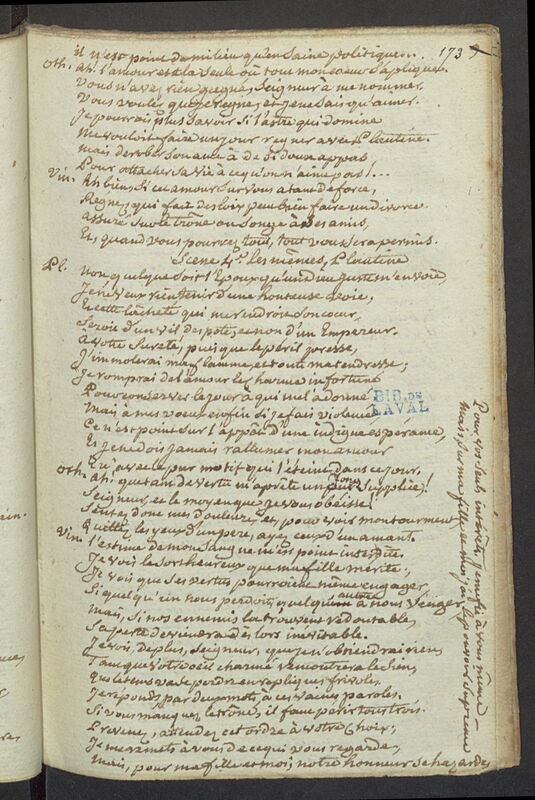 173
il n'est point de milieu qu'en saine politique..
Oth. ah! l'amour est la seule où tout mon coeur s'aplique.
Vous n'avez rien gagné, Seigneur à me nommer,
Vous voulez que je regne, et je ne sais qu'aimer.
Je pourrois plus savoir si l'astre qui domine
Me vouloit faire un jour regner avec Plautine.
mais dérober son ame à de si doux appas,
Pour attacher sa vie à ce qu'on n'aime pas!...
Vin. Ah bien, si cet amour sur vous a tant de force,
Regnez, qui fait des loix peut bien faire un divorce.
du trône on songe à ses amis,
Et, quand vous pourrez tout, tout vous sera permis.
Scene 4e. Les mêmes, Plautine
Pl. Non quelque soit l'Epoux qu'un dieu juste m'envoie,
Je ne veux rien tenir d'une honteuse voie,
Et cette lâcheté qui me rendroit son coeur,
Seroit d'un vil despote, et non d'un Empereur.
à votre sureté, puis que le péril presse,
J'immolerai ma flamme et toute ma tendresse;
Je romprai de l'amour le charme infortuné
Pour conserver le jour à qui me l'a donné
Mais à mes voeux enfin si je fais violence,
Ce n'est point sur l'appât d'une indigne esperance,
Et je ne dois jamais rallumer mon amour
Qu'avec le pur motif qui l'éteint dans ce jour,
Oth. ah! que tant de vertu m'aprête un long supplice!
Seigneur, et le moyen que je vous obéisse!
Sentez donc mes douleurs, et, pour voir mon tourment
Quittez les yeux d'un pere, ayez ceux d'un amant.
Vin. l'estime de mon sang ne m'est point interdite.
Je vois le sort heureux que ma fille mérite;
Je vois que ses vertus pourroient même engager,
Si quelqu'un nous perdoit, quelqu'autre à nous venger,
Mais, si nos ennemis la trouvent redoutable,
Sa perte deviendra dès lors inévitable.
Je vois, de plus, Seigneur, que je n'obtiendrai rien
Tant que votre oeil charmé rencontrera le sien,
Que le tems va se perdre en repliques frivoles.
Je réponds par deux mots à ces vaines paroles.
Si vous manquez le trône, il faut périr tous trois.
Prevenez, attendez cet ordre à votre choix;
Je me remets à vous de ce qui vous regarde,
Mais, pour ma fille et moi, notre honneur se hazarde,
Pour vos seuls interêts, j'en à vous même
Mais, sur ma fille et moi, le pouvoir suprême
BIB. DE
LAVAL